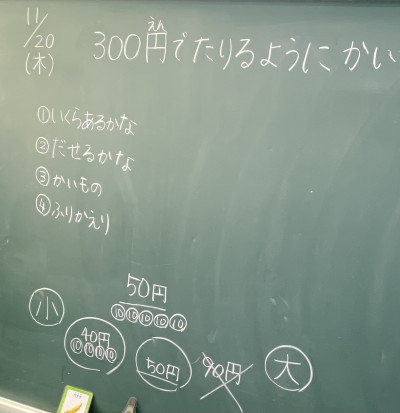 11/20
(木)
300円でたりるようにかい
えん
①いくらあるかな
②だせるかな
③かいもの
④ふりかえり
50円
⑩⑩⑩⑩⑩
小
40円
⑩⑩⑩⑩
50円
90円
大